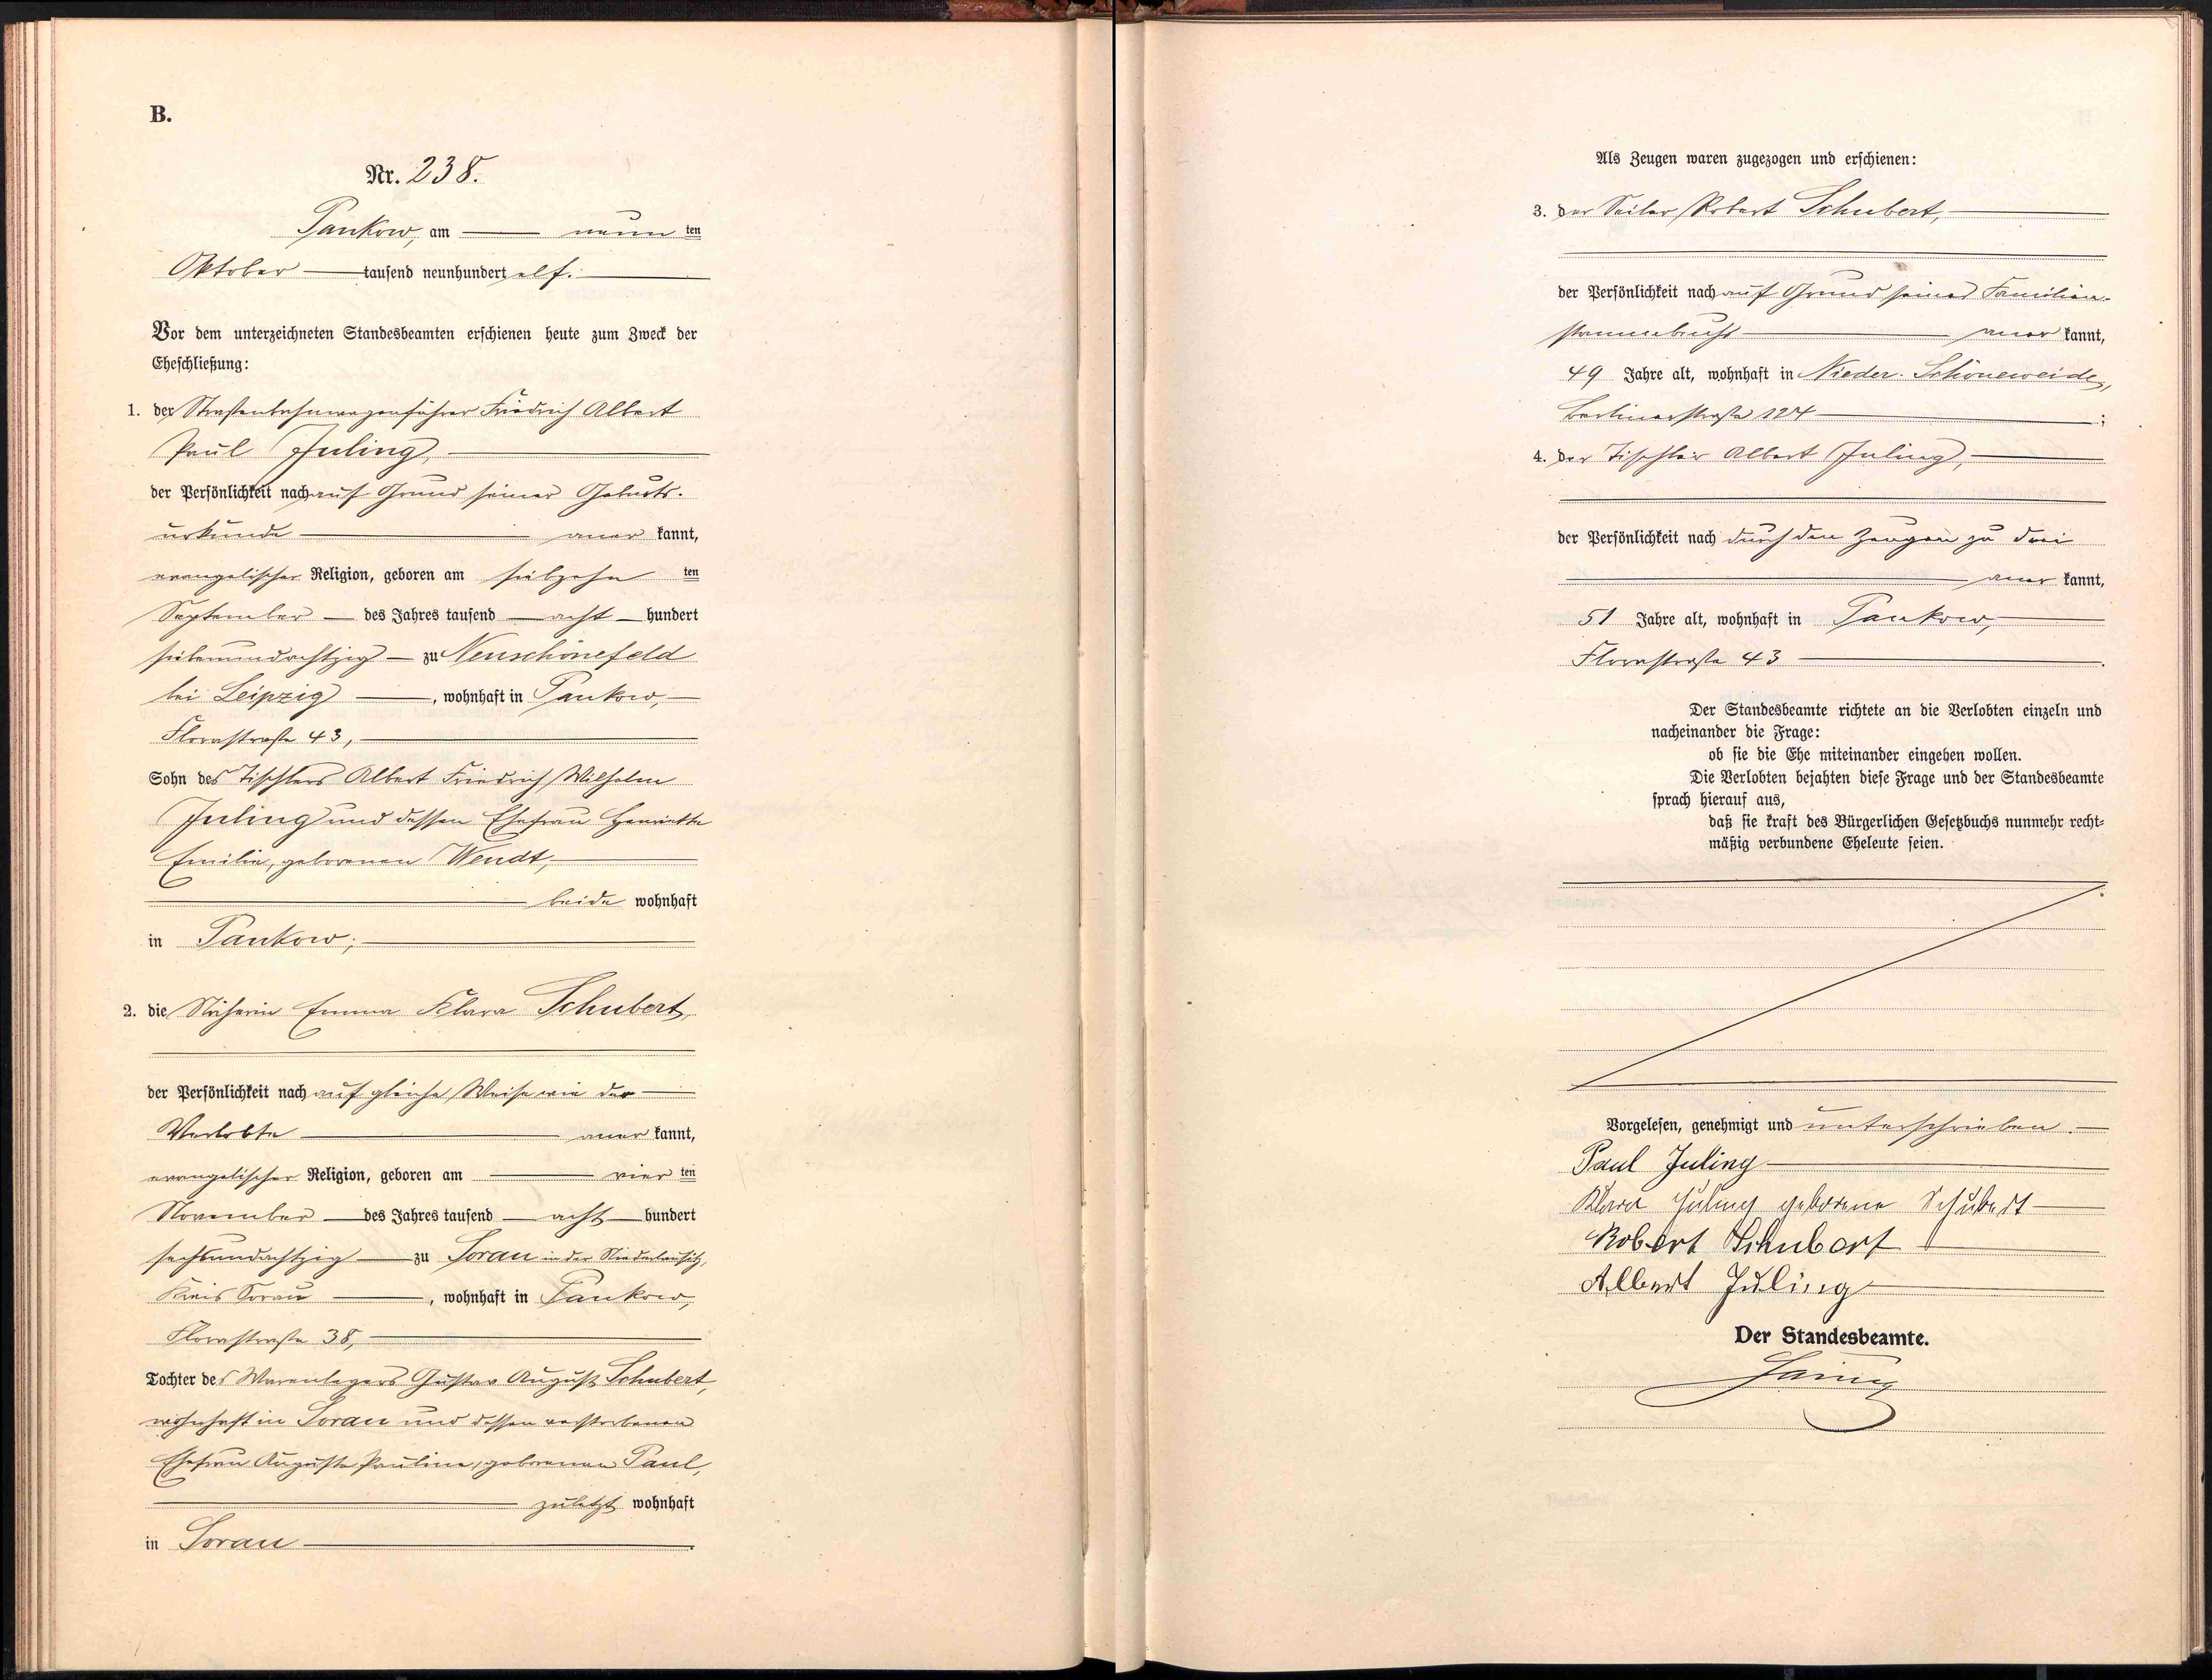 B.
Nr. 238.
Pankow, am neun ten
Oktober tausend neunhundert elf.
Vor dem unterzeichneten Standesbeamten erschienen heute zum Zweck der
Eheschließung:
1. der Straßenbahnwagenführer Friedrich Albert
Paul Juling,
der Persönlichkeit nach auf Grund seiner Geburts-
urkunde aner kannt,
evangelischer Religion, geboren am siebzehn ten
September des Jahres tausend acht hundert
siebenundachtzig zu Neuschönefeld
bei Leipzig, wohnhaft in Pankow,
Florastraße 43,
Sohn des Tischlers Albert Friedrich Wilhelm
Juling und dessen Ehefrau Henriette
Emilie, geborenen Wendt,
beide wohnhaft
in Pankow;
2. die Näherin Emma Klara Schubert,
der Persönlichkeit nach auf gleiche Weise wie der
Verlobte aner kannt,
evangelischer Religion, geboren am vier ten
November des Jahres tausend acht hundert
sechsundachtzig zu Sorau in der Niederlausitz,
Kreis Sorau, wohnhaft in Pankow,
Florastraße 38,
Tochter des Gustav August Schubert,
wohnhaft in Sorau und dessen verstorbenen
Ehefrau Auguste Pauline, geborenen Paul,
zuletzt wohnhaft
in Sorau.
Als Zeugen waren zugezogen und erschienen:
3. der Seiler Robert Schubert,
der Persönlichkeit nach auf Grund seines Familien-
stammbuchs aner kannt,
49 Jahre alt, wohnhaft in Nieder-Schöneweide,
Berlinerstraße 124;
4. der Tischler Albert Juling,
der Persönlichkeit nach durch den Zeugen zu drei
aner kannt,
51 Jahre alt, wohnhaft in Pankow,
Florastraße 43.
Der Standesbeamte richtete an die Verlobten einzeln und
nacheinander die Frage:
ob sie die Ehe miteinander eingehen wollen.
Die Verlobten bejahten diese Frage und der Standesbeamte
sprach hierauf aus,
daß sie kraft des Bürgerlichen Gesetzbuchs nunmehr recht-
mäßig verbundene Eheleute seien.
Vorgelesen, genehmigt und unterschrieben.
Paul Juling
Klara Juling geborene Schubert
Robert Schubert
Albert Juling
Der Standesbeamte.